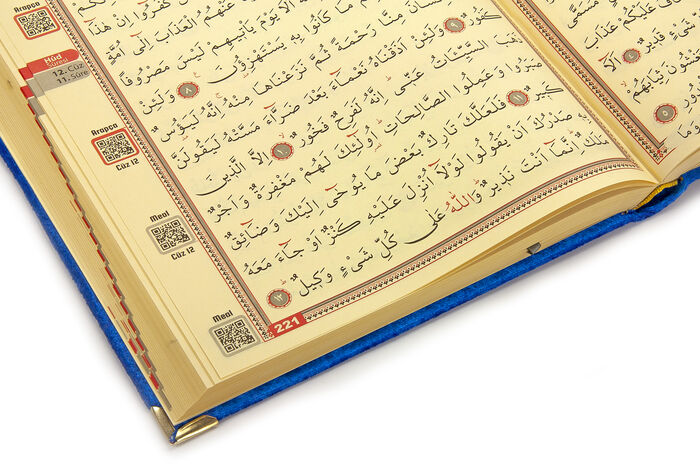 كَفَرُوا اِنْ هٰذَا
عَنْهُمُ الْعَذَابَ اِلٰٓى اُمَّةٍ
اَلَا يَوْمَ يَأْتٖيهِمْ لَيْسَ مَصْرُوفًا
مَا كَانُوا بِهٖ يَسْتَهْزِؤُنَ ٨ وَلَئِنْ
مِنَّا رَحْمَةً ثُمَّ نَزَعْنَاهَا مِنْهُ اِنَّهُ لَيَؤُسٌ
كَفُورٌ ٩ وَلَئِنْ اَذَقْنَاهُ نَعْمَٓاءَ بَعْدَ ضَرَّٓاءَ مَسَّتْهُ لَيَقُولَنَّ
السَّيِّـَٔاتُ عَنّٖى اِنَّهُ لَفَرِحٌ فَخُورٌ ١٠ اِلَّا الَّذٖينَ
صَبَرُوا وَعَمِلُوا الصَّالِحَاتِ اُولٰٓئِكَ لَهُمْ مَغْفِرَةٌ وَاَجْرٌ
كَبٖيرٌ ١١ فَلَعَلَّكَ تَارِكٌ بَعْضَ مَا يُوحٰٓى اِلَيْكَ وَضَٓائِقٌ
بِهٖ صَدْرُكَ اَنْ يَقُولُوا لَوْلَٓا اُنْزِلَ عَلَيْهِ كَنْزٌ اَوْ جَٓاءَ مَعَهُ
مَلَكٌ اِنَّمَٓا اَنْتَ نَذٖيرٌ وَاللّٰهُ عَلٰى كُلِّ شَىْءٍ وَكٖيلٌ ١٢
221
Arapça
Hûd
Sûresi
12. Cüz
11. Sûre
Arapça
Cüz 12
Meal
Cüz 12
Meal
عَلَيْكُمْ عَذَابَ
قَدٖيرٌ ٤ اَلَٓا
ثِيَابَهُمْ
٥